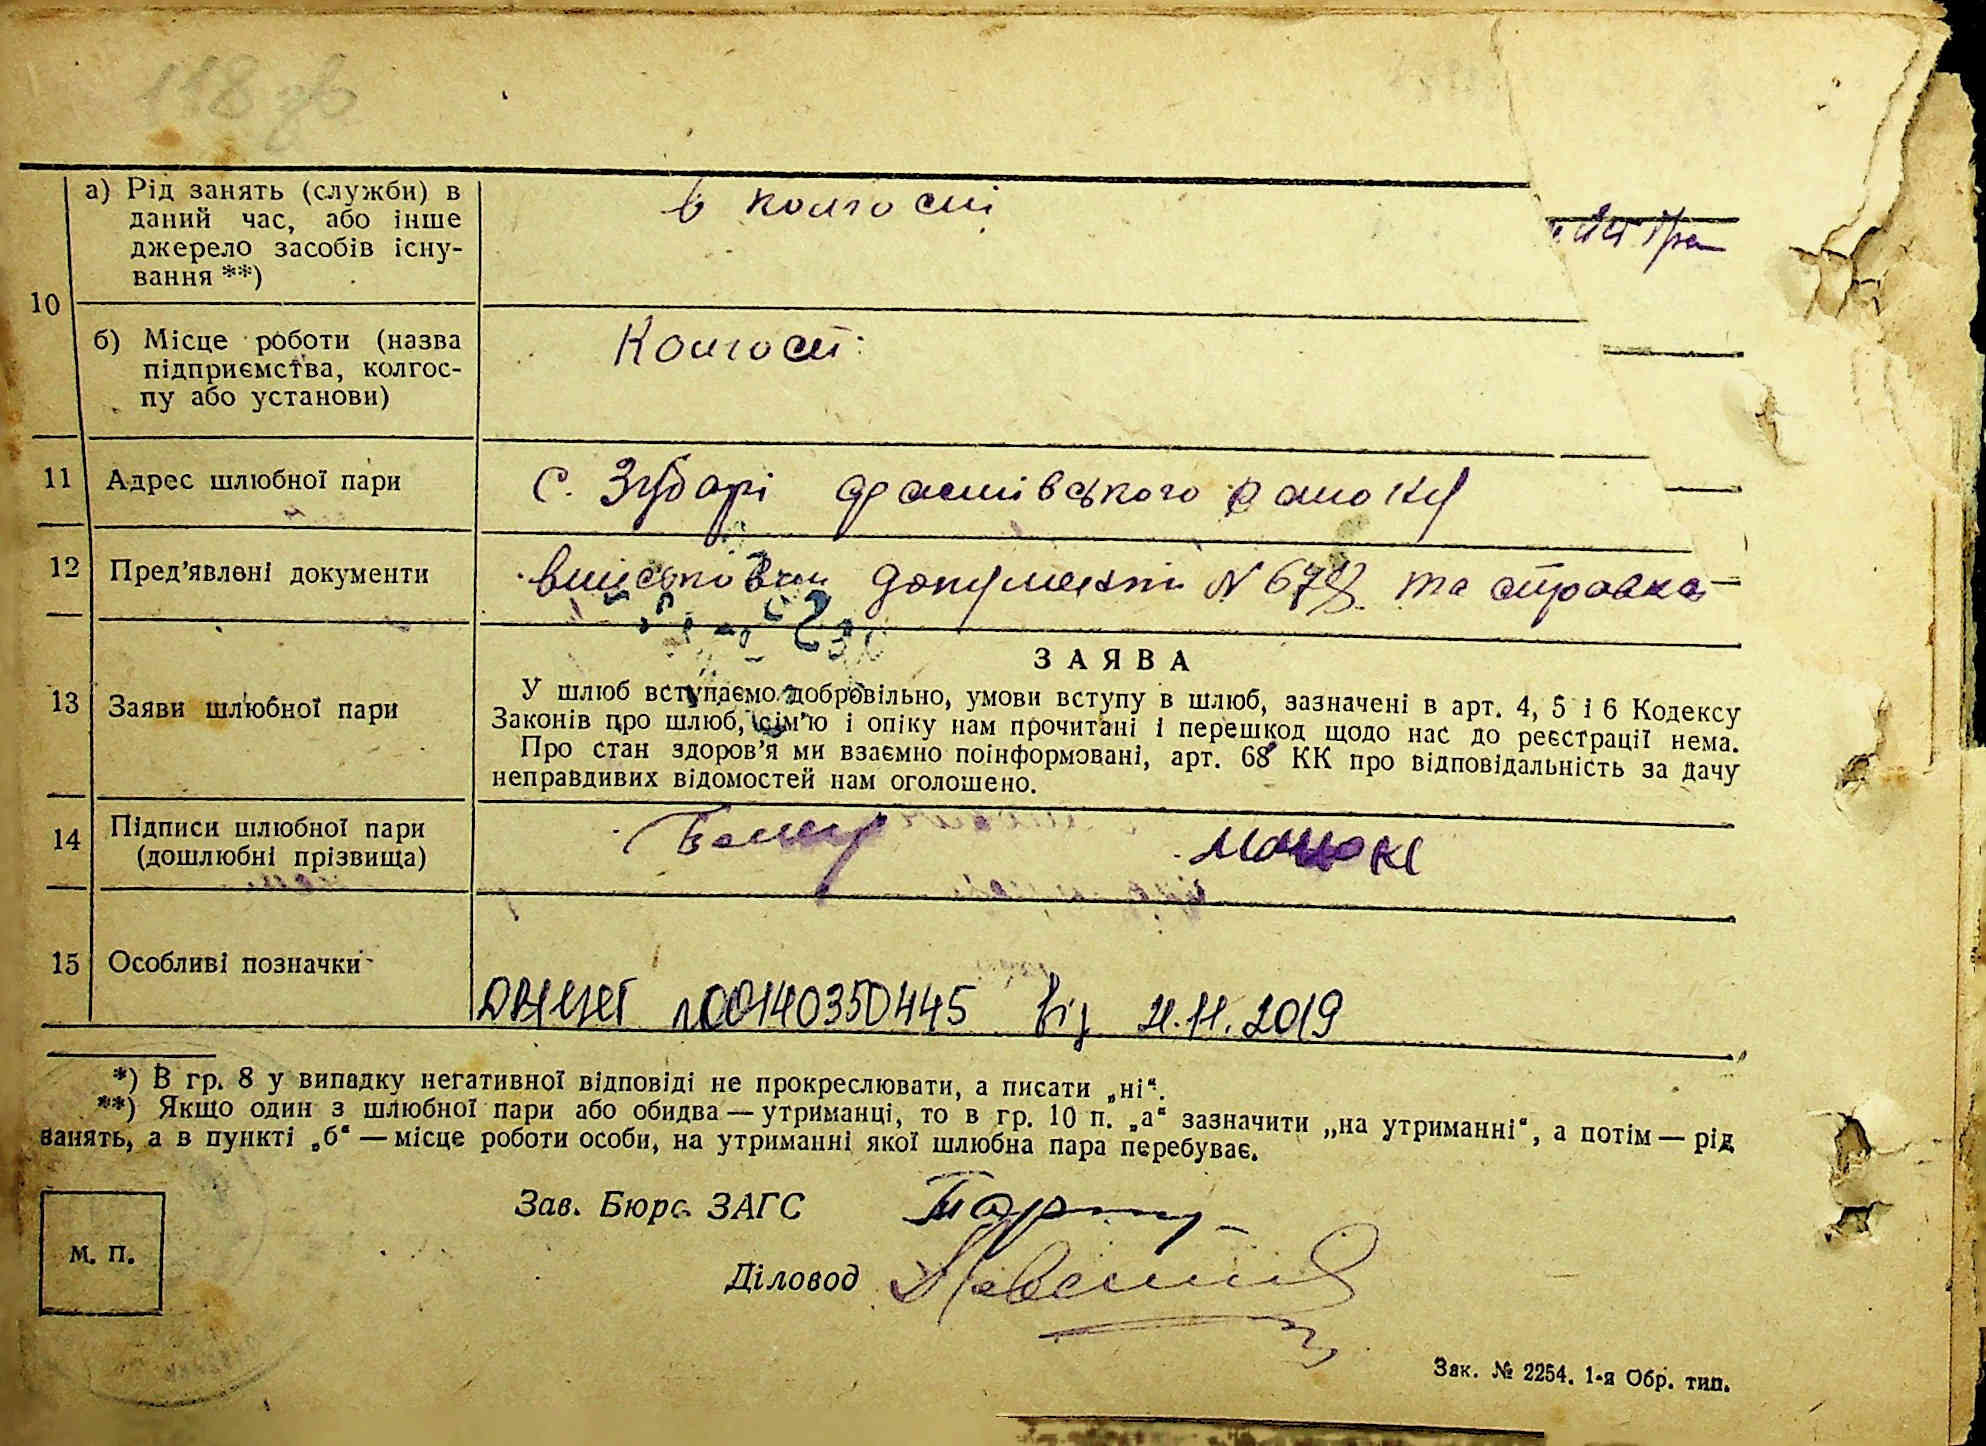 118 зв
10
а) Рід занять (служби) в
даний час, або інше
джерело засобів існу-
вання **)
в колгоспі
б) Місце роботи (назва
підприємства, колгос-
пу або установи)
Колгосп
11 Адрес шлюбної пари
с. Зубарі
12 Пред'явлені документи
документи N 678 та справка
13 Заяви шлюбної пари
ЗАЯВА
У шлюб вступаємо добровільно, умови вступу в шлюб, зазначені в арт. 4, 5 і 6 Кодексу
Законів про шлюб, сім'ю і опіку нам прочитані і перешкод щодо нас до реєстрації нема.
Про стан здоров'я ми взаємно поінформовані, арт. 68 КК про відповідальність за дачу
неправдивих відомостей нам оголошено.
14 Підписи шлюбної пари
(дошлюбні прізвища)
15 Особливі позначки
00140350445 від 21.11.2019
*) В гр. 8 у випадку негативної відповіді не прокреслювати, а писати „ні“.
**) Якщо один з шлюбної пари або обидва — утриманці, то в гр. 10 п. „а“ зазначити „на утриманні“, а потім — рід
занять, а в пункті „б“ — місце роботи особи, на утриманні якої шлюбна пара перебуває.
Зав. Бюро ЗАГС
Діловод
М. П.
Зак. № 2254. 1-я Обр. тип.